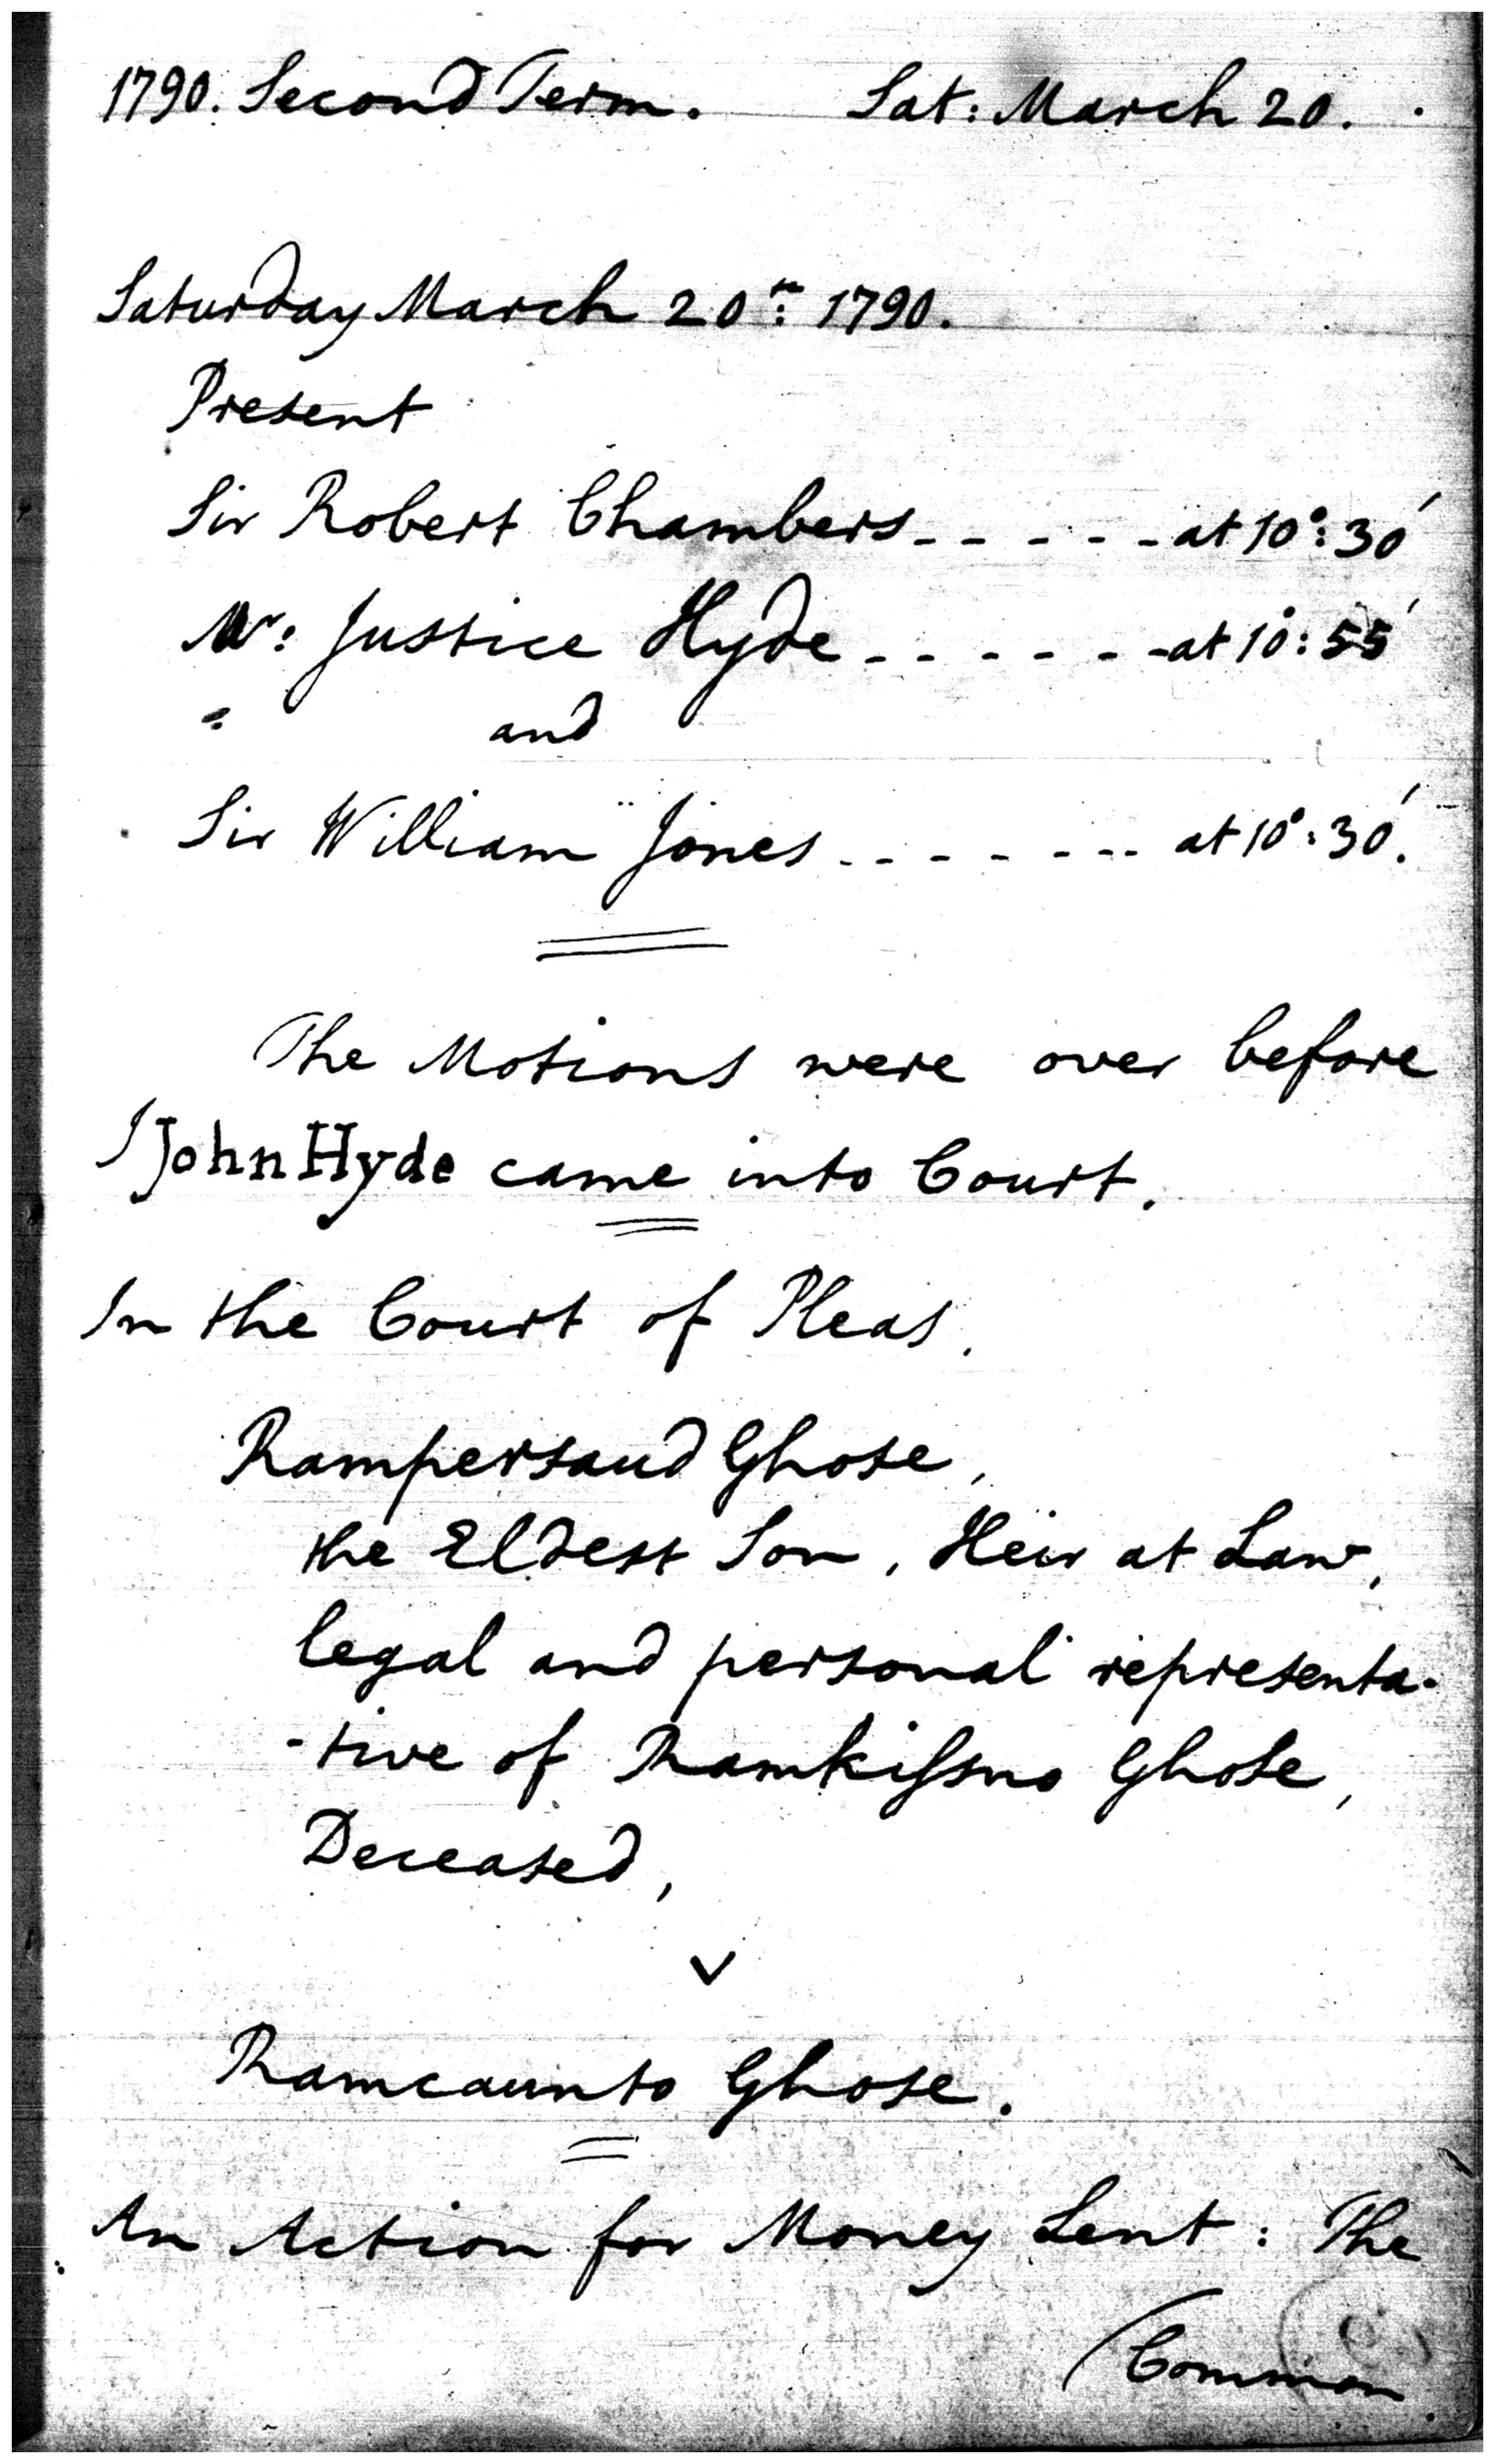 1790. Second Term. Sat: March 20.
Saturday March 20th: 1790.
Present
Sir Robert Chambers - - - - - at 10°: 30'
Mr: Justice Hyde - - - - - - at 10°: 55'
and
Sir William Jones - - - - - - - at 10°: 30'.
The Motions were over before
I John Hyde came into Court.
In the Court of Pleas.
Rampersaud Ghose,
the Eldest Son, Heir at Law,
legal and personal representa-
-tive of Ramkissno Ghose,
Deceased,
v
Ramcaunto Ghose.
An Action for Money Lent: The
(Common